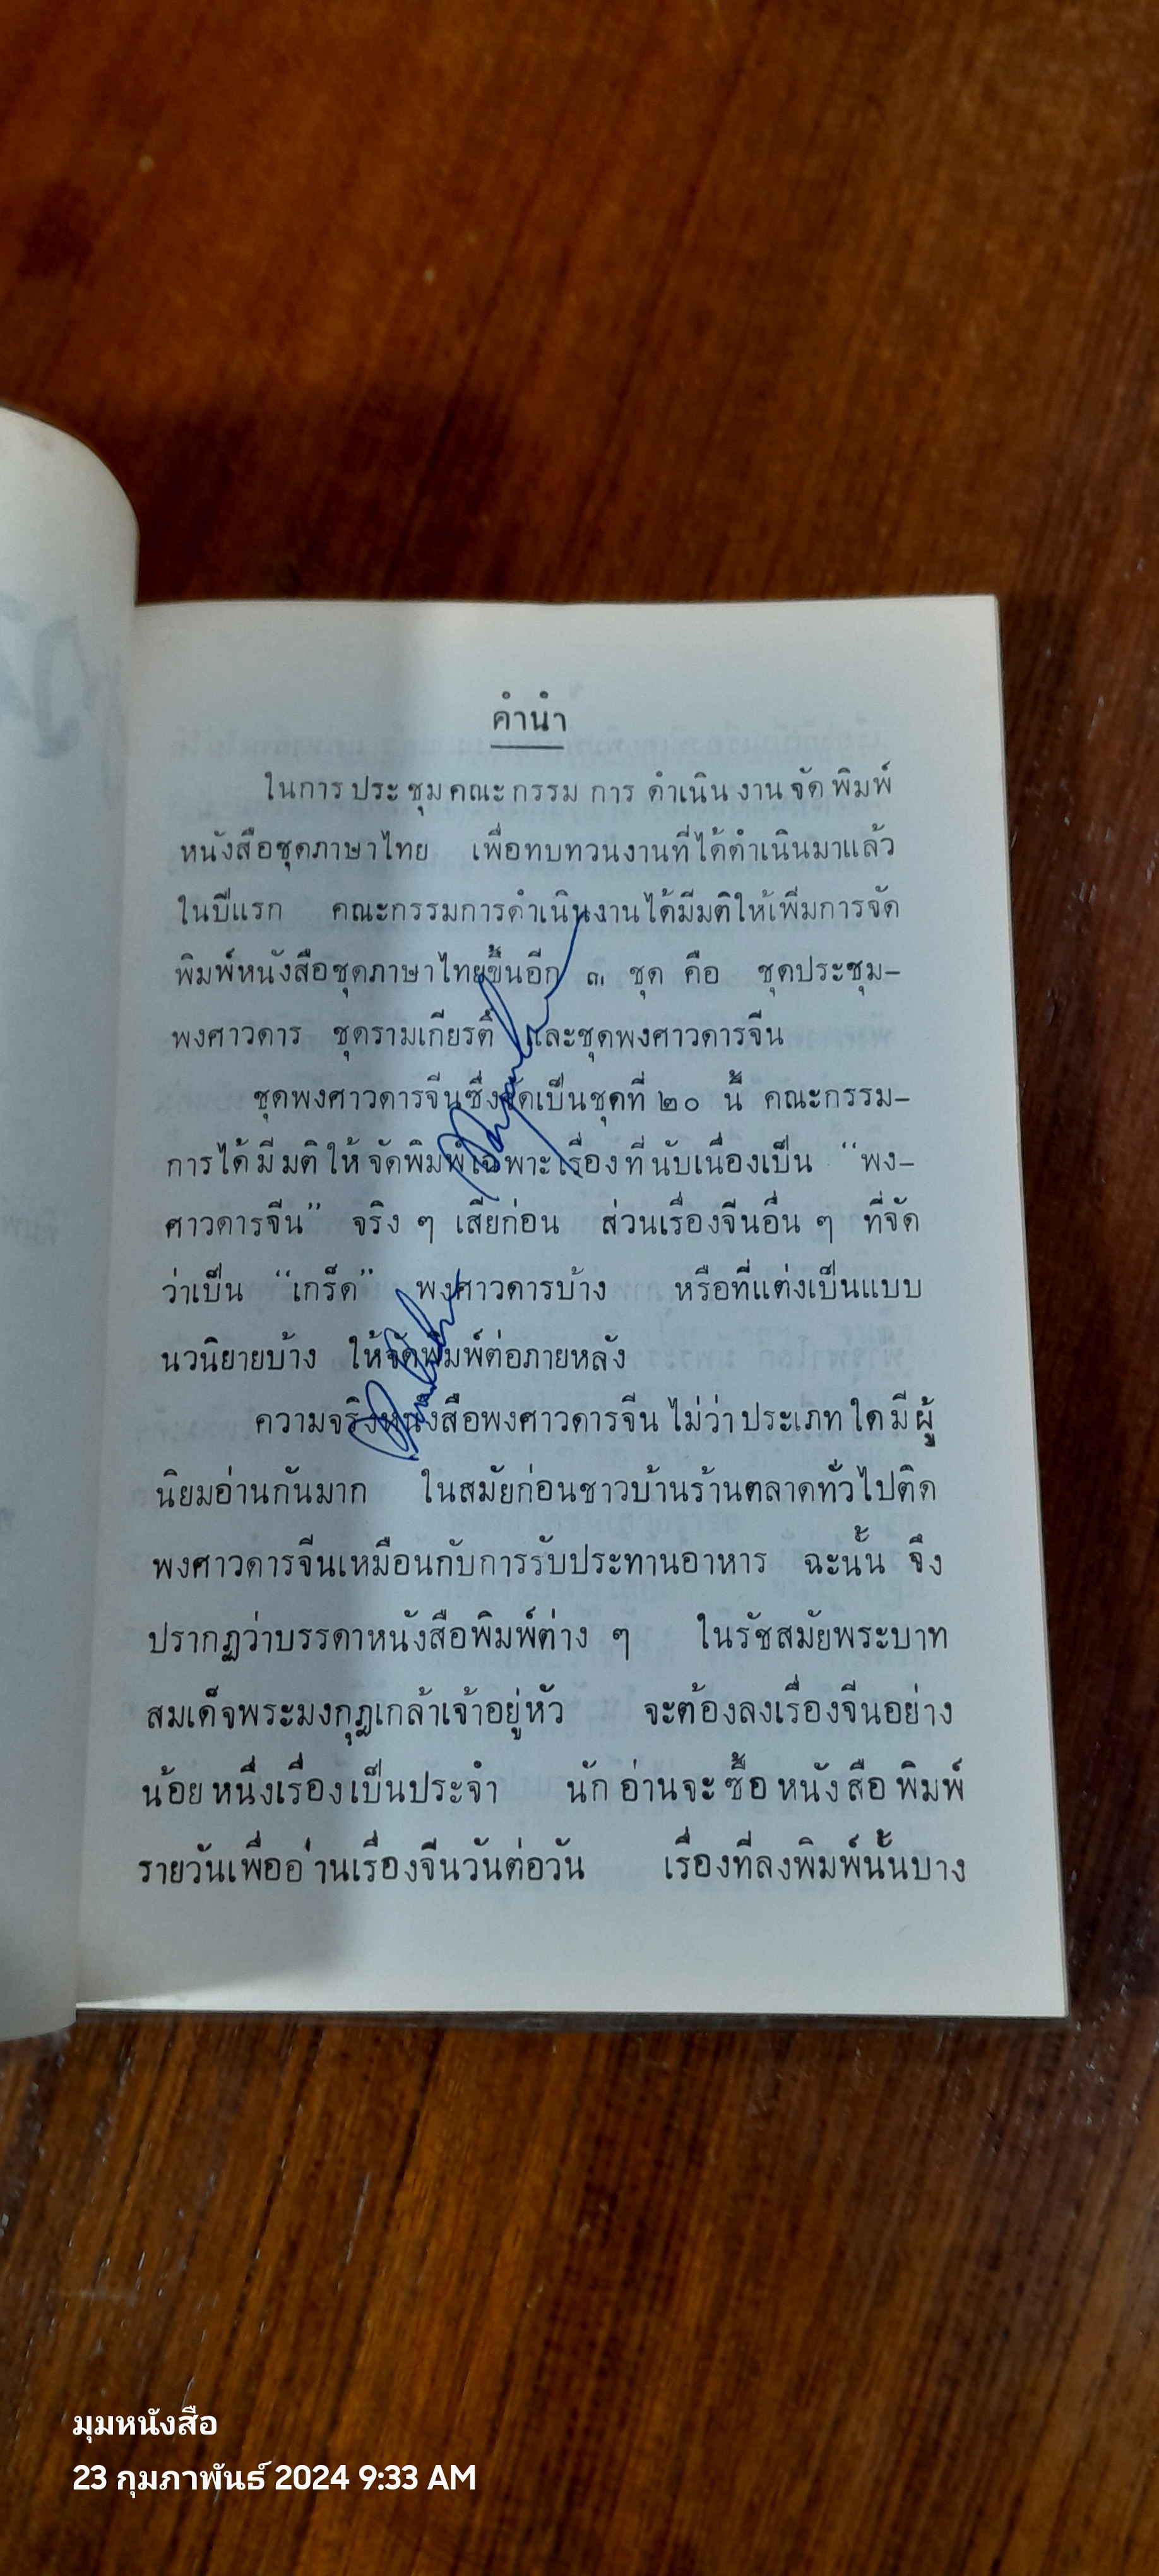 คำนำ
ในการประชุมคณะกรรมการดำเนินงานจัดพิมพ์
หนังสือชุดภาษาไทย เพื่อทบทวนงานที่ได้ดำเนินมาแล้ว
ในปีแรก คณะกรรมการดำเนินงานได้มีมติให้เพิ่มการจัด
พิมพ์หนังสือชุดภาษาไทยขึ้นอีก ๓ ชุด คือ ชุดประชุม-
พงศาวดาร ชุดรามเกียรติ์ และชุดพงศาวดารจีน
ชุดพงศาวดารจีนซึ่งจัดเป็นชุดที่ ๒๐ นี้ คณะกรรม-
การได้มีมติให้จัดพิมพ์เฉพาะเรื่องที่นับเนื่องเป็น “พง-
ศาวดารจีน” จริง ๆ เสียก่อน ส่วนเรื่องจีนอื่น ๆ ที่จัด
ว่าเป็น “เกร็ด” พงศาวดารบ้าง หรือที่แต่งเป็นแบบ
นวนิยายบ้าง ให้จัดพิมพ์ต่อภายหลัง
ความจริงหนังสือพงศาวดารจีน ไม่ว่าประเภทใดมีผู้
นิยมอ่านกันมาก ในสมัยก่อนชาวบ้านร้านตลาดทั่วไปติด
พงศาวดารจีนเหมือนกับการรับประทานอาหาร ฉะนั้น จึง
ปรากฏว่าบรรดาหนังสือพิมพ์ต่าง ๆ ในรัชสมัยพระบาท
สมเด็จพระมงกุฎเกล้าเจ้าอยู่หัว จะต้องลงเรื่องจีนอย่าง
น้อยหนึ่งเรื่องเป็นประจำ นักอ่านจะซื้อหนังสือพิมพ์
รายวันเพื่ออ่านเรื่องจีนวันต่อวัน เรื่องที่ลงพิมพ์นั้นบาง
มุมหนังสือ
23 กุมภาพันธ์ 2024 9:33 AM